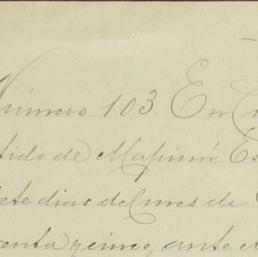 Número 103. En
tido de Mapimí Es
ete dias del mes de
enta y cinco, ante